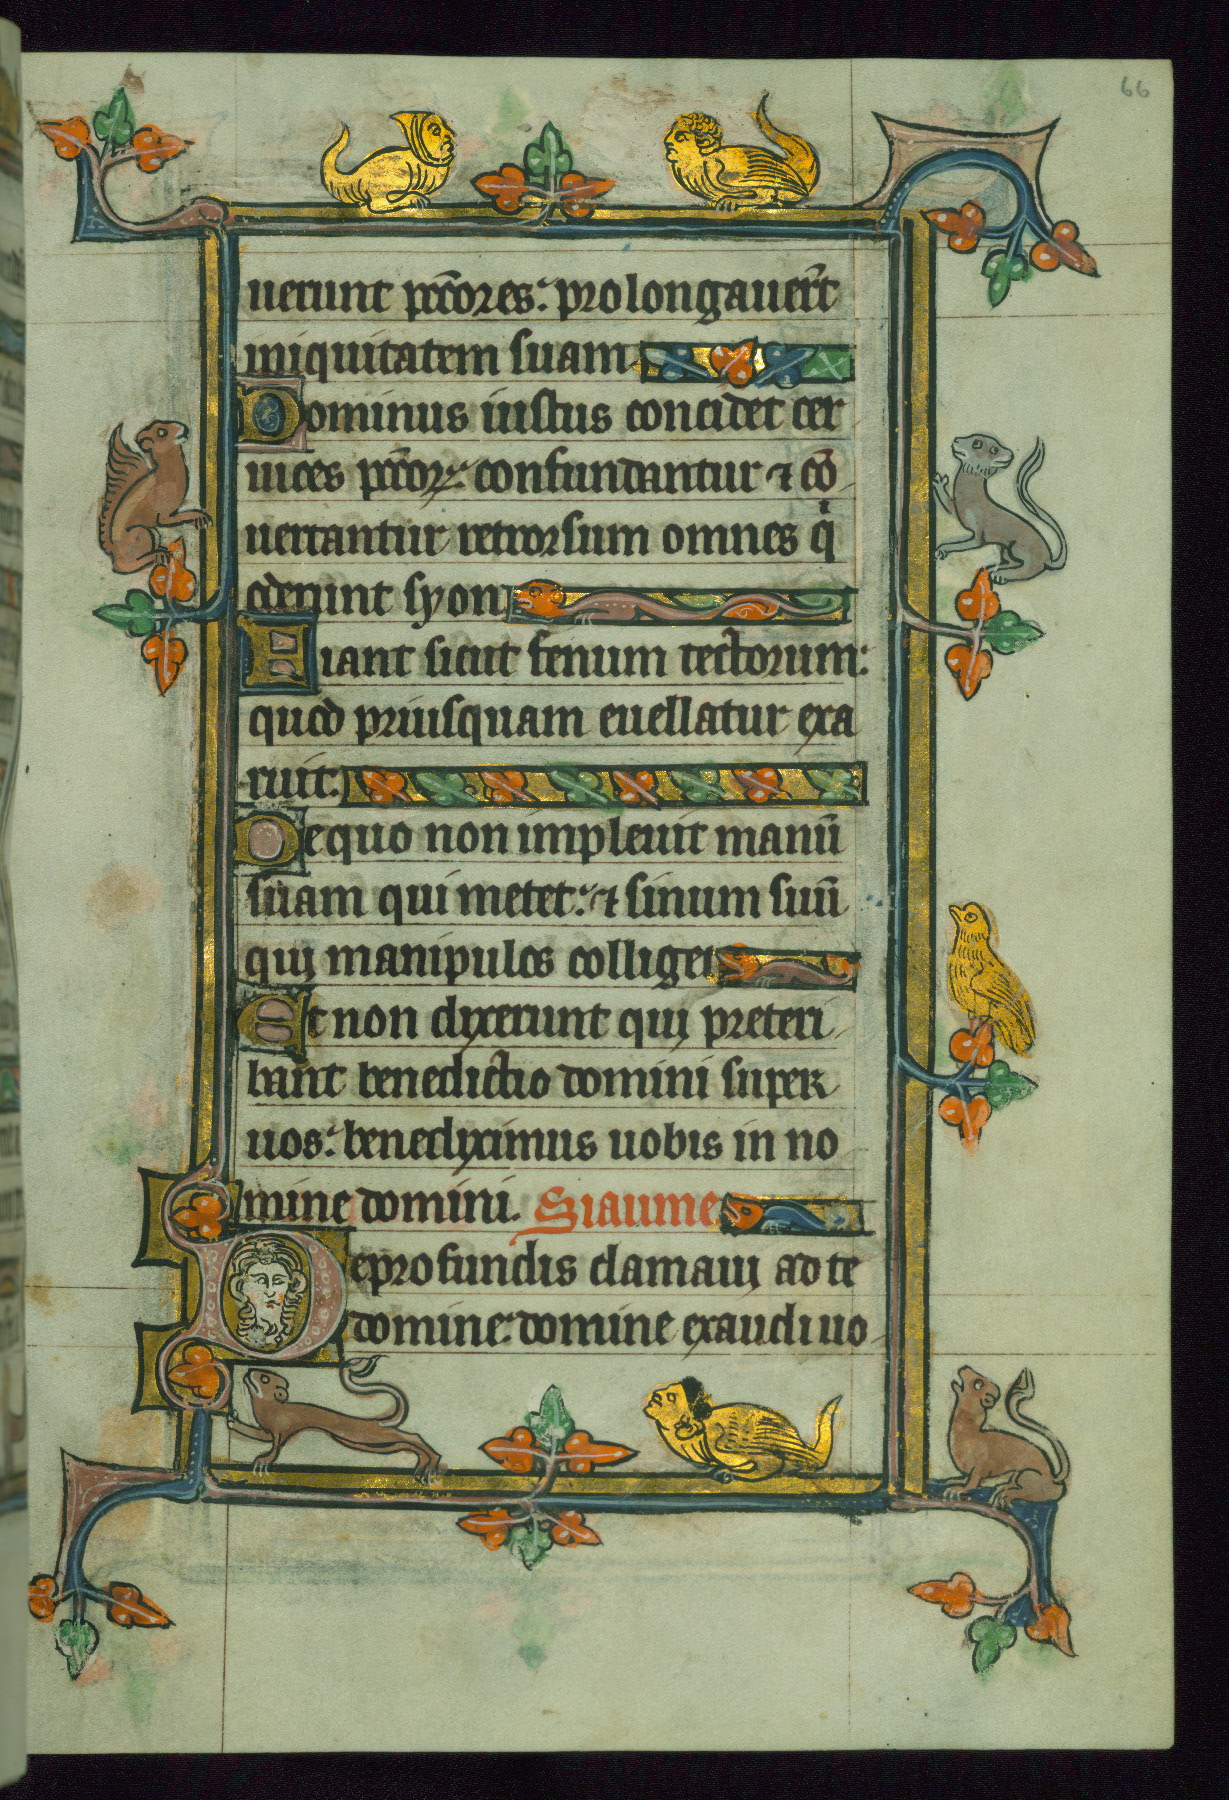 66
uerunt p̄cc̄ores: prolongauer̄t
iniquitatem suam
Dominus iustus concidet cer
uices pc̄corꝝ: confundantur ⁊ cō
uertantur retrorsum omnes qi
oderunt syon
Fiant sicut fenum tectorum:
quod priusquam euellatur exa
ruit.
De quo non impleuit manū
suam qui metet: ⁊ sinum suū
qui manipulos colliget
Et non dyxerunt qui preteri
bant benedictio domini super
uos: benedyximus uobis in no
mine domini. Siaume
De profundis clamaui ad te
domine: domine exaudi uo